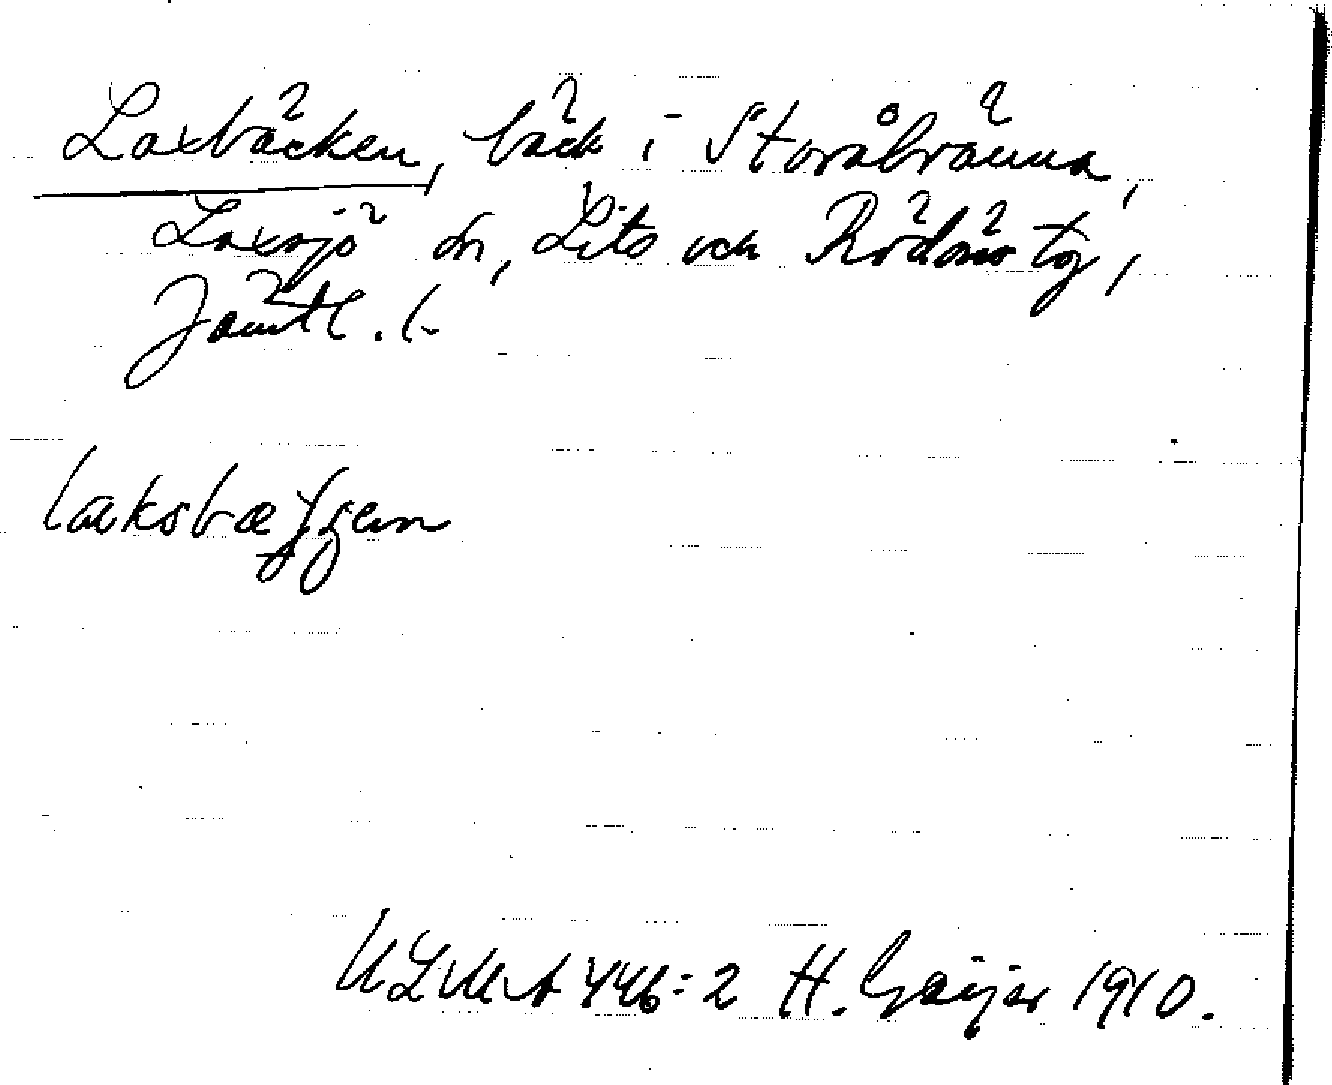 Laxbäcken, bäck i Storåbränna,
Laxsjö sn, Lits och Rödöns tg,
Jämtl. l.
laksbæʃʃen
ULMA 446:2 H. Geijer 1910.